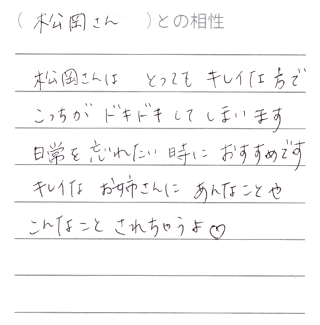 （ 松岡さん ）との相性
松岡さんは とっても キレイな方で
こっちが ドキドキ してしまいます
日常を忘れたい時に おすすめです
キレイな お姉さんに あんなことや
こんなこと されちゃうよ♡